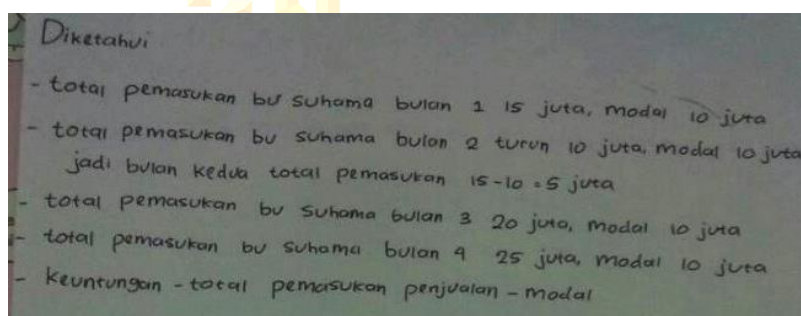 Diketahui
- total pemasukan bu suhama bulan 1 15 juta, modal 10 juta
- total pemasukan bu suhama bulan 2 turun 10 juta, modal 10 juta
jadi bulan kedua total pemasukan 15-10 = 5 juta
- total pemasukan bu suhama bulan 3 20 juta, modal 10 juta
- total pemasukan bu suhama bulan 4 25 juta, modal 10 juta
- keuntungan - total pemasukan penjualan - modal